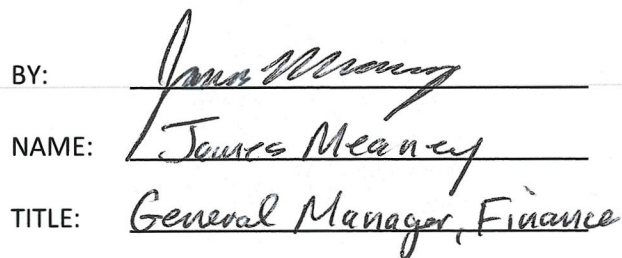 BY: James Meaney
NAME: James Meaney
TITLE: General Manager, Finance